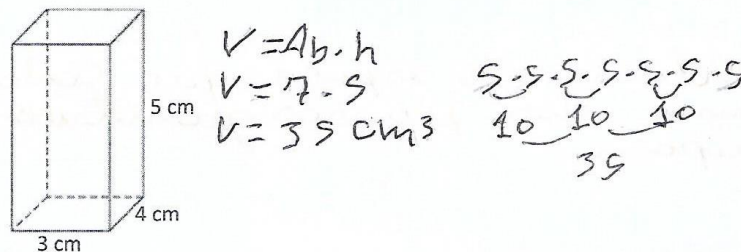 5 cm
4 cm
3 cm
V = Ab · h
V = 7 · 5
V = 35 cm³
5 · 5 · 5 · 5 · 5 · 5 · 5
10 10 10
35